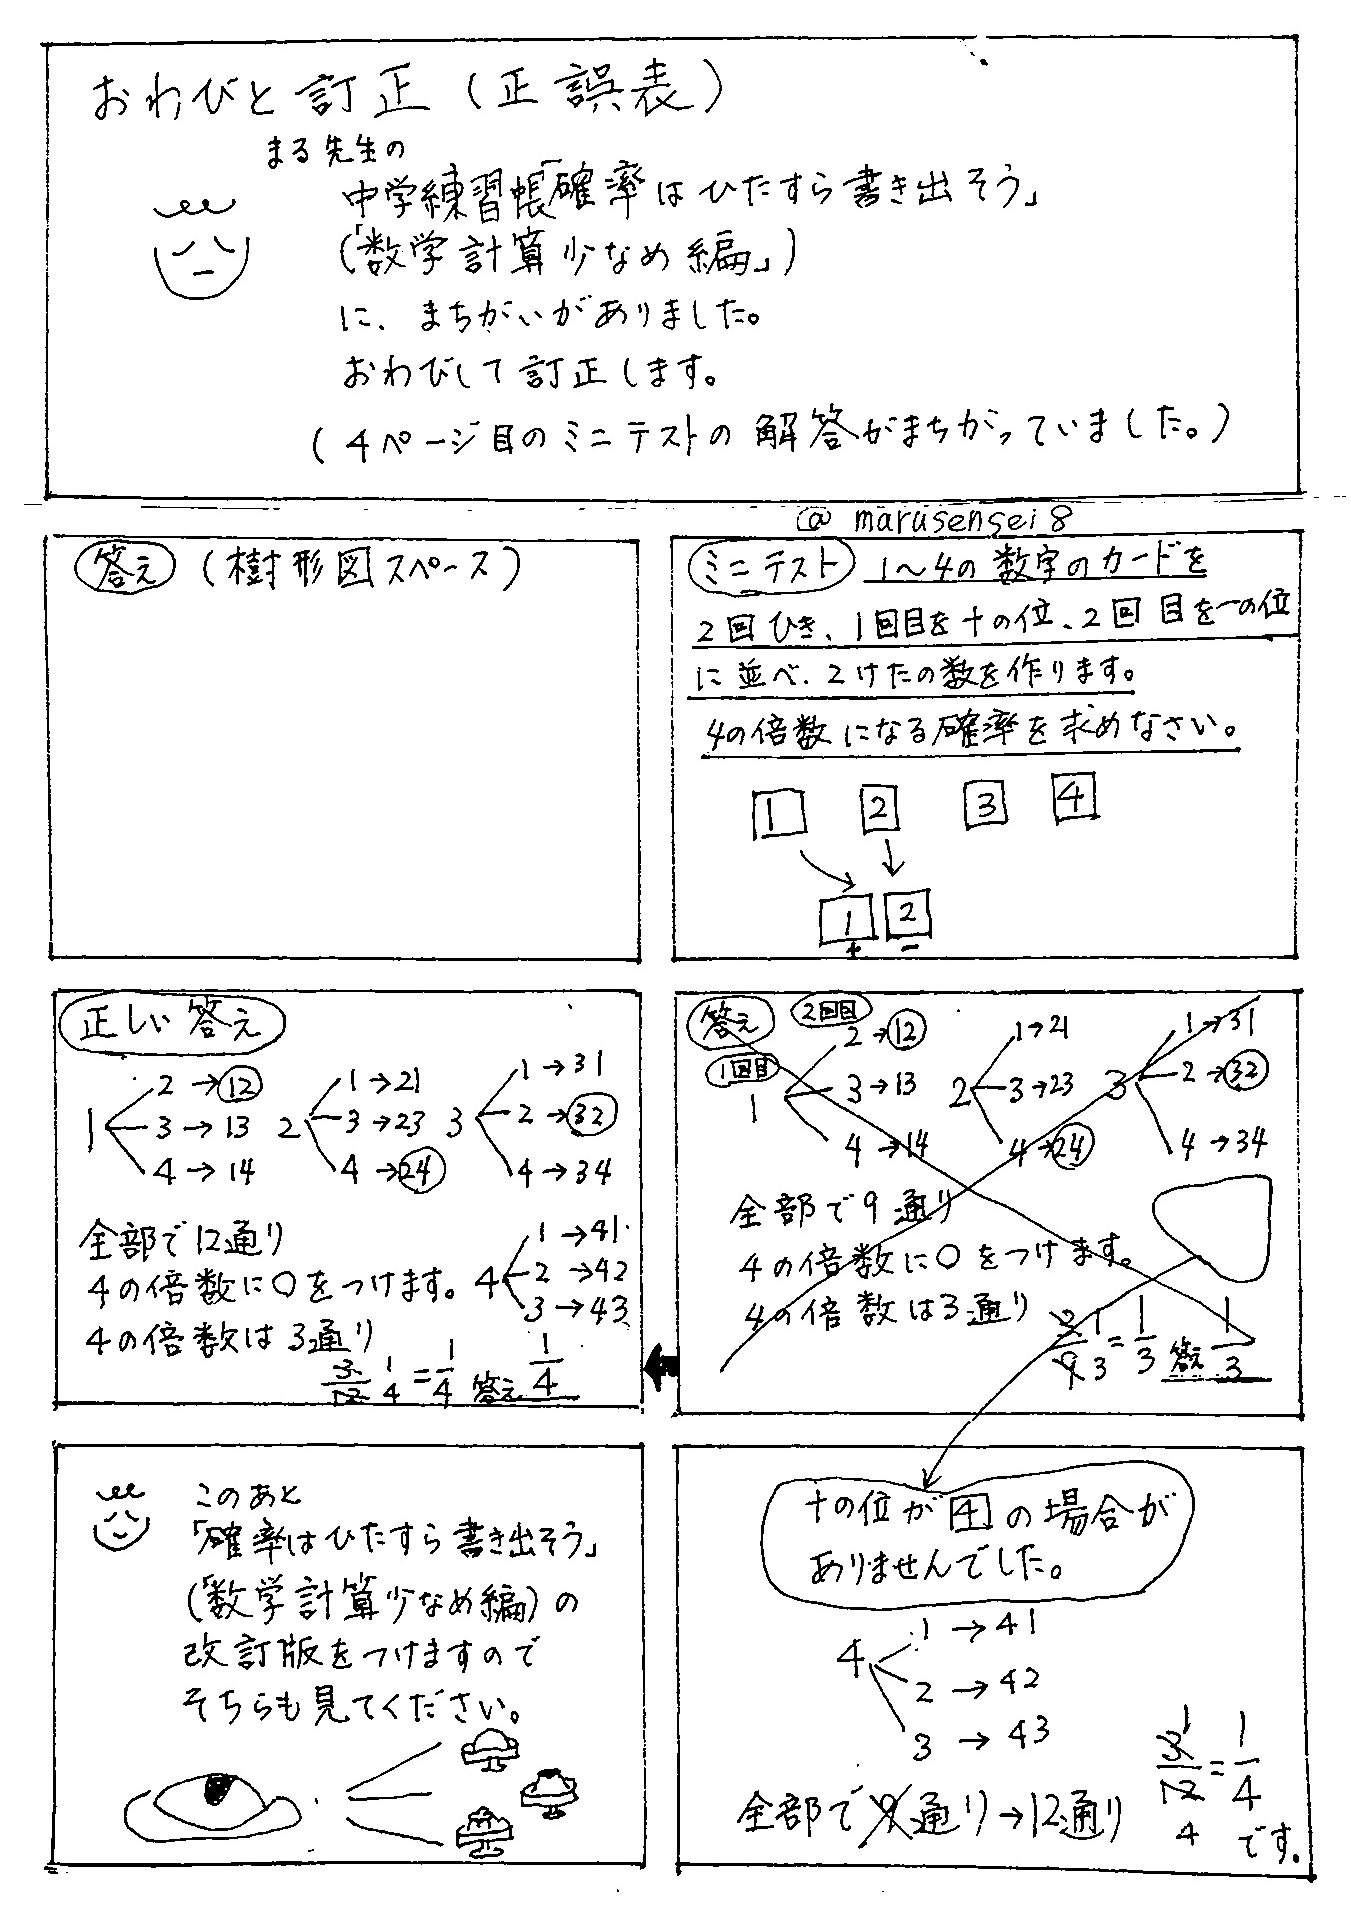 おわびと訂正(正誤表)
まる先生の
中学練習帳「確率はひたすら書き出そう」
(「数学計算少なめ編」)
に、まちがいがありました。
おわびして訂正します。
(4ページ目のミニテストの解答がまちがっていました。)
@marusensei8
ミニテスト 1〜4の数字のカードを
2回ひき、1回目を十の位、2回目を一の位
に並べ、2けたの数を作ります。
4の倍数になる確率を求めなさい。
1 2 3 4
1 2
十 一
答え (樹形図スペース)
答え 2回目
1回目
1 2→12 3→13 4→14
2 1→21 3→23 4→24
3 1→31 2→32 4→34
全部で9通り
4の倍数に○をつけます。
4の倍数は3通り
3/9 1/3=1/3 答え 1/3
正しい答え
1 2→12 3→13 4→14
2 1→21 3→23 4→24
3 1→31 2→32 4→34
4 1→41 2→42 3→43
全部で12通り
4の倍数に○をつけます。
4の倍数は3通り
3/12 1/4=1/4 答え 1/4
十の位が4の場合が
ありませんでした。
4 1→41
2→42
3→43
全部で9通り→12通り
3/12 1/4=1/4
です。
このあと
「確率はひたすら書き出そう」
(「数学計算少なめ編)の
改訂版をつけますので
そちらも見てください。